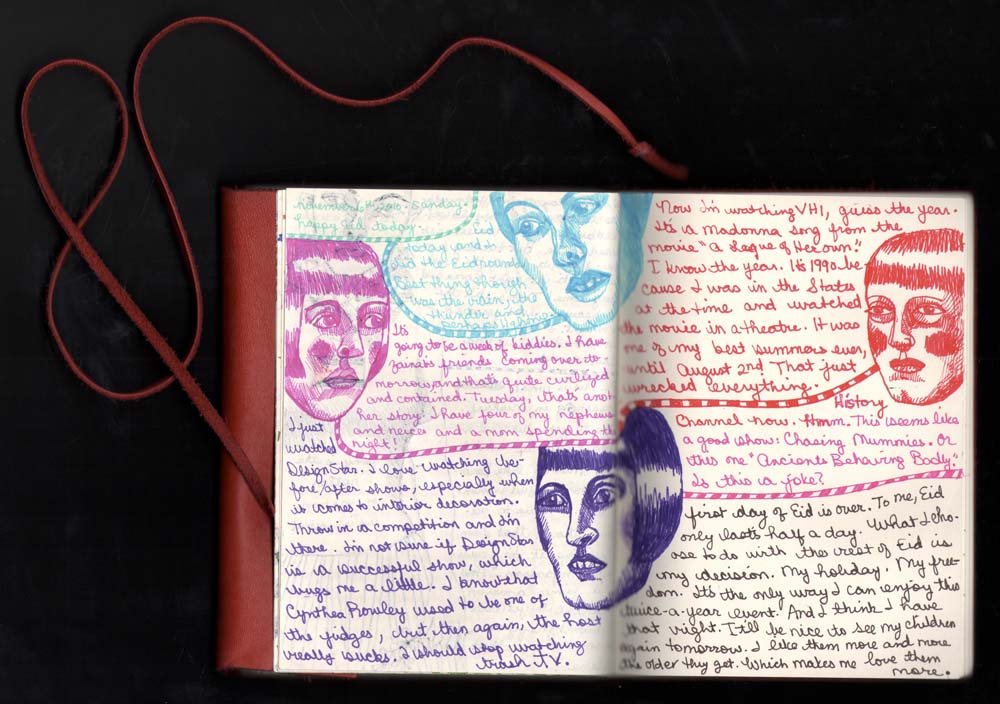 november 16th 2010. Sunday.
happy Eid today.
Eid
today and I
did the Eid rounds.
Best thing though
was the rain, the
thunder and
perhaps lightning.
It's
going to be a week of kiddies. I have
Zaina's friends coming over to-
morrow, and that's quite civilized
and contained. Tuesday, that's anot
her story. I have four of my nephews
and neices and a mom spending the
night!
I just
watched
Design Star. I love watching be-
fore/after shows, especially when
it comes to interior decoration.
Throw in a competition and I'm
there. I'm not sure if Design Star
is a successful show, which
bugs me a little. I know that
Cynthea Rowley used to be one of
the judges, but then again, the host
really sucks. I should stop watching
trash TV.
Now I'm watching VH1, guess the year.
It's a Madonna song from the
movie "A League of Her own."
I know the year. It's 1990 be-
cause I was in the States
at the time and watched
the movie in a theatre. It was
one of my best summers ever,
until August 2nd. That just
wrecked everything.
History
Channel now. Hmm. This seems like
a good show: Chasing Mummies. Or
this one "Ancients Behaving Badly."
Is this a joke?
first day of Eid is over. To me, Eid
only lasts half a day. What I cho-
ose to do with the rest of Eid is
my decision. My holiday. My free-
dom. It's the only way I can enjoy this
twice-a-year event. And I think I have
that right. It'll be nice to see my children
again tomorrow. I like them more and more
the older they get. Which makes me love them
more.